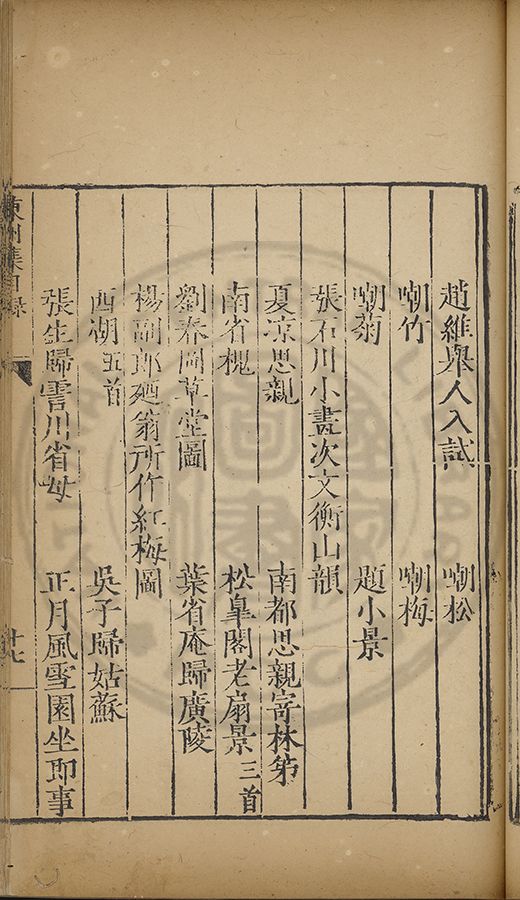 趙維舉人入試　嘲松
嘲竹　嘲梅
嘲菊　題小景
張石川小畫次文衡山韻
夏凉思親　南都思親寄林第
南省槐　松皐閣老扇景三首
劉春岡草堂圖　葉省庵歸廣陵
楊副郎廼翁所作紅梅圖
西湖五首　吳子歸姑蘇
張生歸霅川省母　正月風雪園坐即事
集目錄　十七